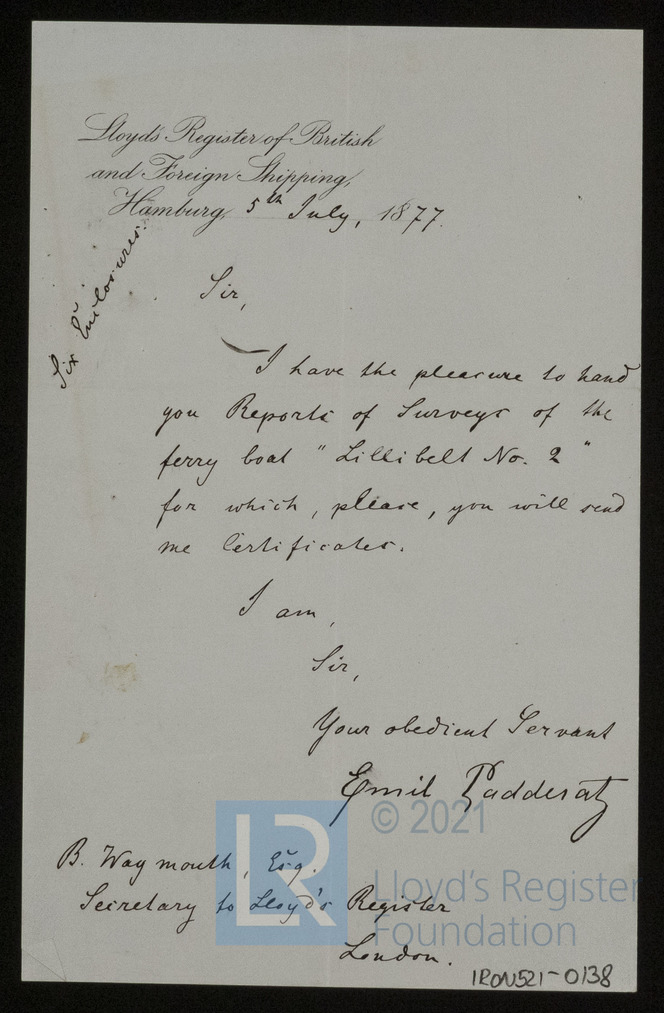 Lloyd's Register of British
and Foreign Shipping,
Hamburg, 5th July, 1877.
Six Enclosures.
Sir,
I have the pleasure to hand
you Reports of Surveys of the
ferry boat "Lillibelt No. 2"
for which, please, you will send
me Certificates.
I am,
Sir,
Your obedient Servant
Emil Padderatz
B. Waymouth, Esq.
Secretary to Lloyd's Register
London.
LR
© 2021
Lloyd's Register
Foundation
IRON521-0138